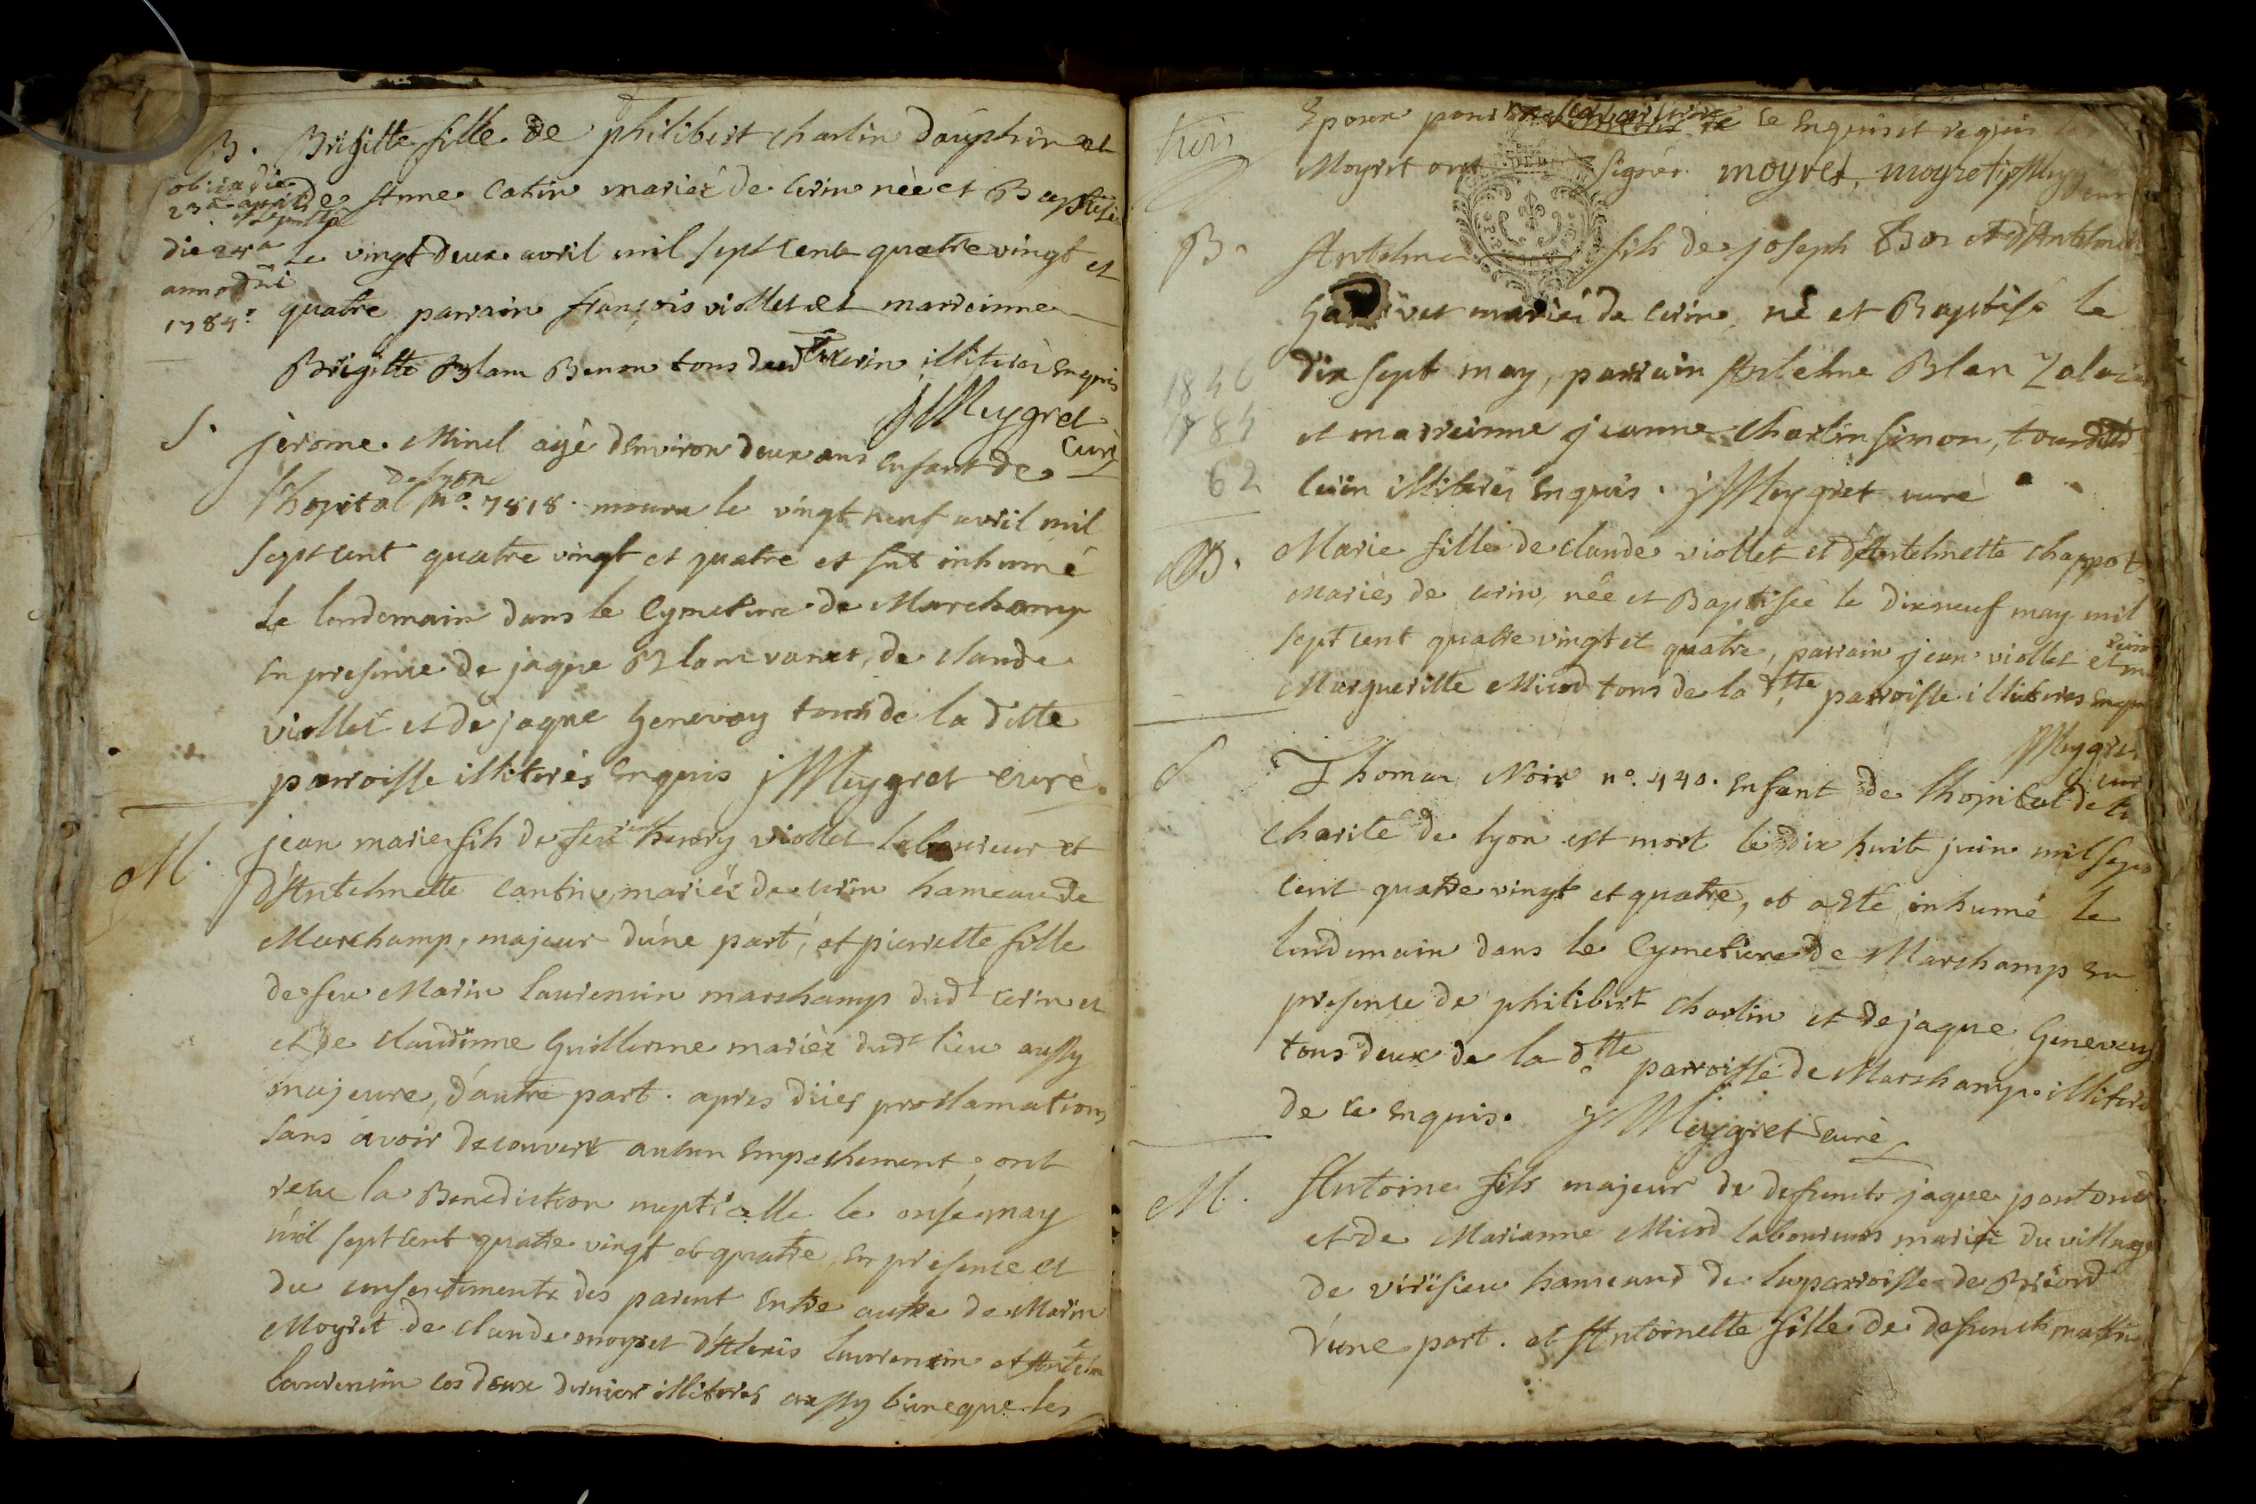 B. Brigitte fille de philibert charlin dauphin et
obiit die
23a aprilis
et sepulta
die 24a
anno dni
1784.
de Anne Catin mariéz de cerin née et Baptisée
le vingt deux avril mil sept cent quatre vingt et
quatre parrain françois viollet et marreinne
Brigitte Blanc Benon tous deux de cerin illiterés enquis
J Meygret
curé
S. jerome Minel agé d'environ deux ans enfant de
l'hopital de lyon no. 7818. moura le vingt neuf avril mil
sept cent quatre vingt et quatre et fut inhumé
le lendemain dans le Cymetiere de Marchamp
en presence de jaque Blanc varret, de claude
viollet et de jaque Genevay tous de la ditte
parroisse illiterés enquis J Meygret curé.
M. jean marie fils de feu henry viollet laboureur et
d'Antelmette Cantin, mariéz de cerin hameau de
Marchamp, majeur d'une part, et pierrette fille
de feu Marin laurensin marchamp dudt cerin et
et de claudinne Guillerme mariéz dudt lieu aussy
majeure, d'autre part. apres dües proclamations
sans avoir decouvert aucun empechement, ont
reçu la Benediction nuptialle le onse may
mil sept cent quatre vingt et quatre, en presence et
du consentements des parent entre autre de Marin
Moyret de claude moyret d'Alexis laurensin et Antelme
laurensin les deux dernier illiterés aussy bien que les
trois
Epoux pour ce enquis et requis les
Moyret ont signés. moyret, moyret J Meygret curé
B. Antelme fils de joseph Bor et d'Antelmette
mariés de cerin, né et Baptisé le
dix sept may, parrain Antelme Blan
et marreinne jeanne Charlin simon, tous deux de
cerin illiterés enquis. J Meygret curé
1846
1784
62
B. Marie fille de claude viollet et d'Antelmette chappot
mariés de cerin, née et Baptisée le dix neuf may mil
sept cent quatre vingt et quatre, parrain jean viollet et
Margueritte Micod tous de la dtte parroisse illiteres enquis
J Meygret
curé
S Thomas Noir no. 440. enfant de l'hopital de la
charité de lyon est mort le dix huit juin mil sept
cent quatre vingt et quatre, et a esté inhumé le
lendemain dans le Cymetiere de Marchamp en
presence de philibert charlin et de jaque Genevay
tous deux de la dtte parroisse de Marchamp. illiterés
de ce enquis. J Meygret curé
M. Antoine fils majeur de defunts jaque pontond
et de Marianne Micod laboureurs mariéz du village
de virisieu hameaud de la parroisse de Briord
d'une part. et Antoinette fille de defunct